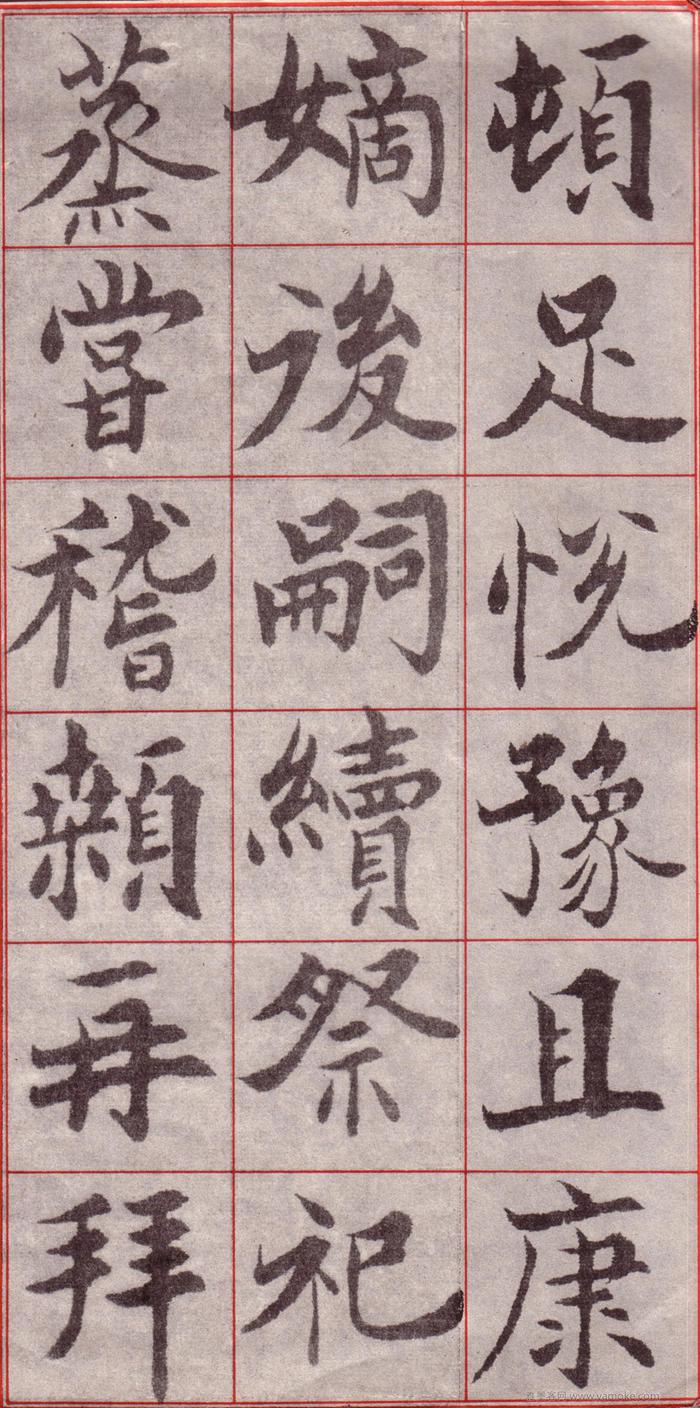 頓足悅豫且康
嫡後嗣續祭祀
蒸嘗稽顙再拜
www.yamoke.com